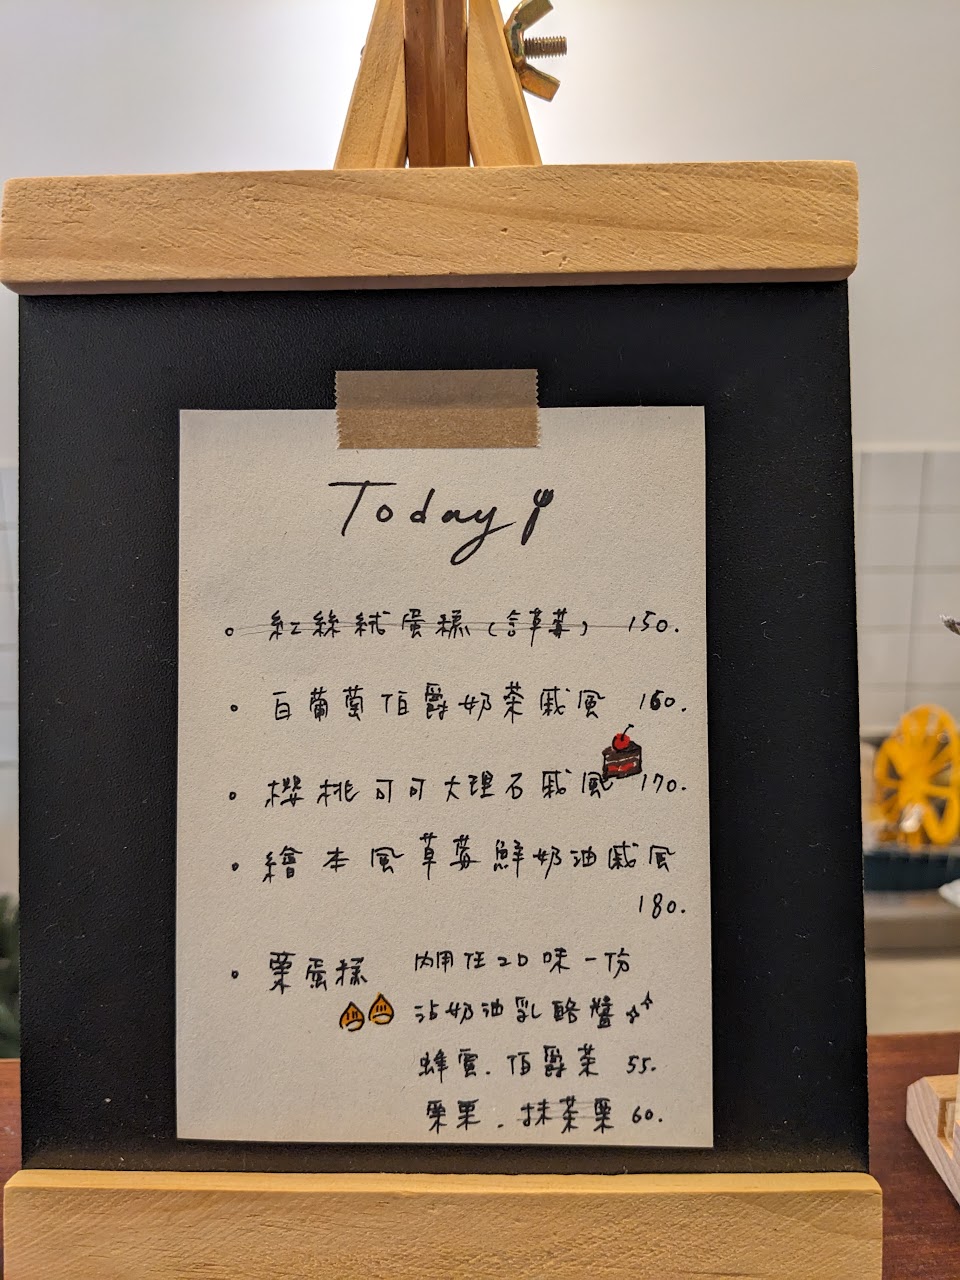 Today
紅絲絨蛋糕(含草莓) 150.
白葡萄伯爵奶茶戚風 160.
櫻桃可可大理石戚風 170.
繪本風草莓鮮奶油戚風
180.
栗蛋糕 內用任2口味一份
沾奶油乳酪醬
蜂蜜.伯爵茶 55.
栗栗.抹茶栗 60.